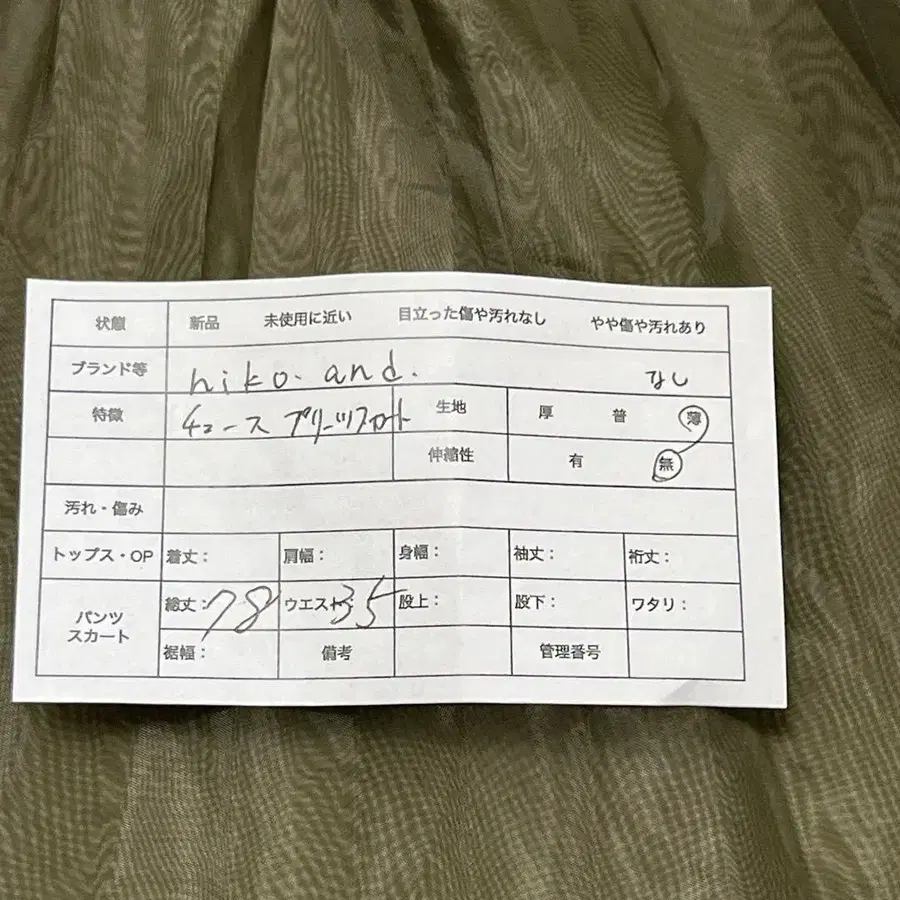 状態 新品 未使用に近い 目立った傷や汚れなし やや傷や汚れあり
ブランド等 niko and. なし
特徴 チュース プリーツスカート 生地 厚 普 薄
伸縮性 有 無
汚れ・傷み
トップス・OP 着丈： 肩幅： 身幅： 袖丈： 裄丈：
パンツ スカート 総丈：78 ウエスト35 股上： 股下： ワタリ：
裾幅： 備考 管理番号